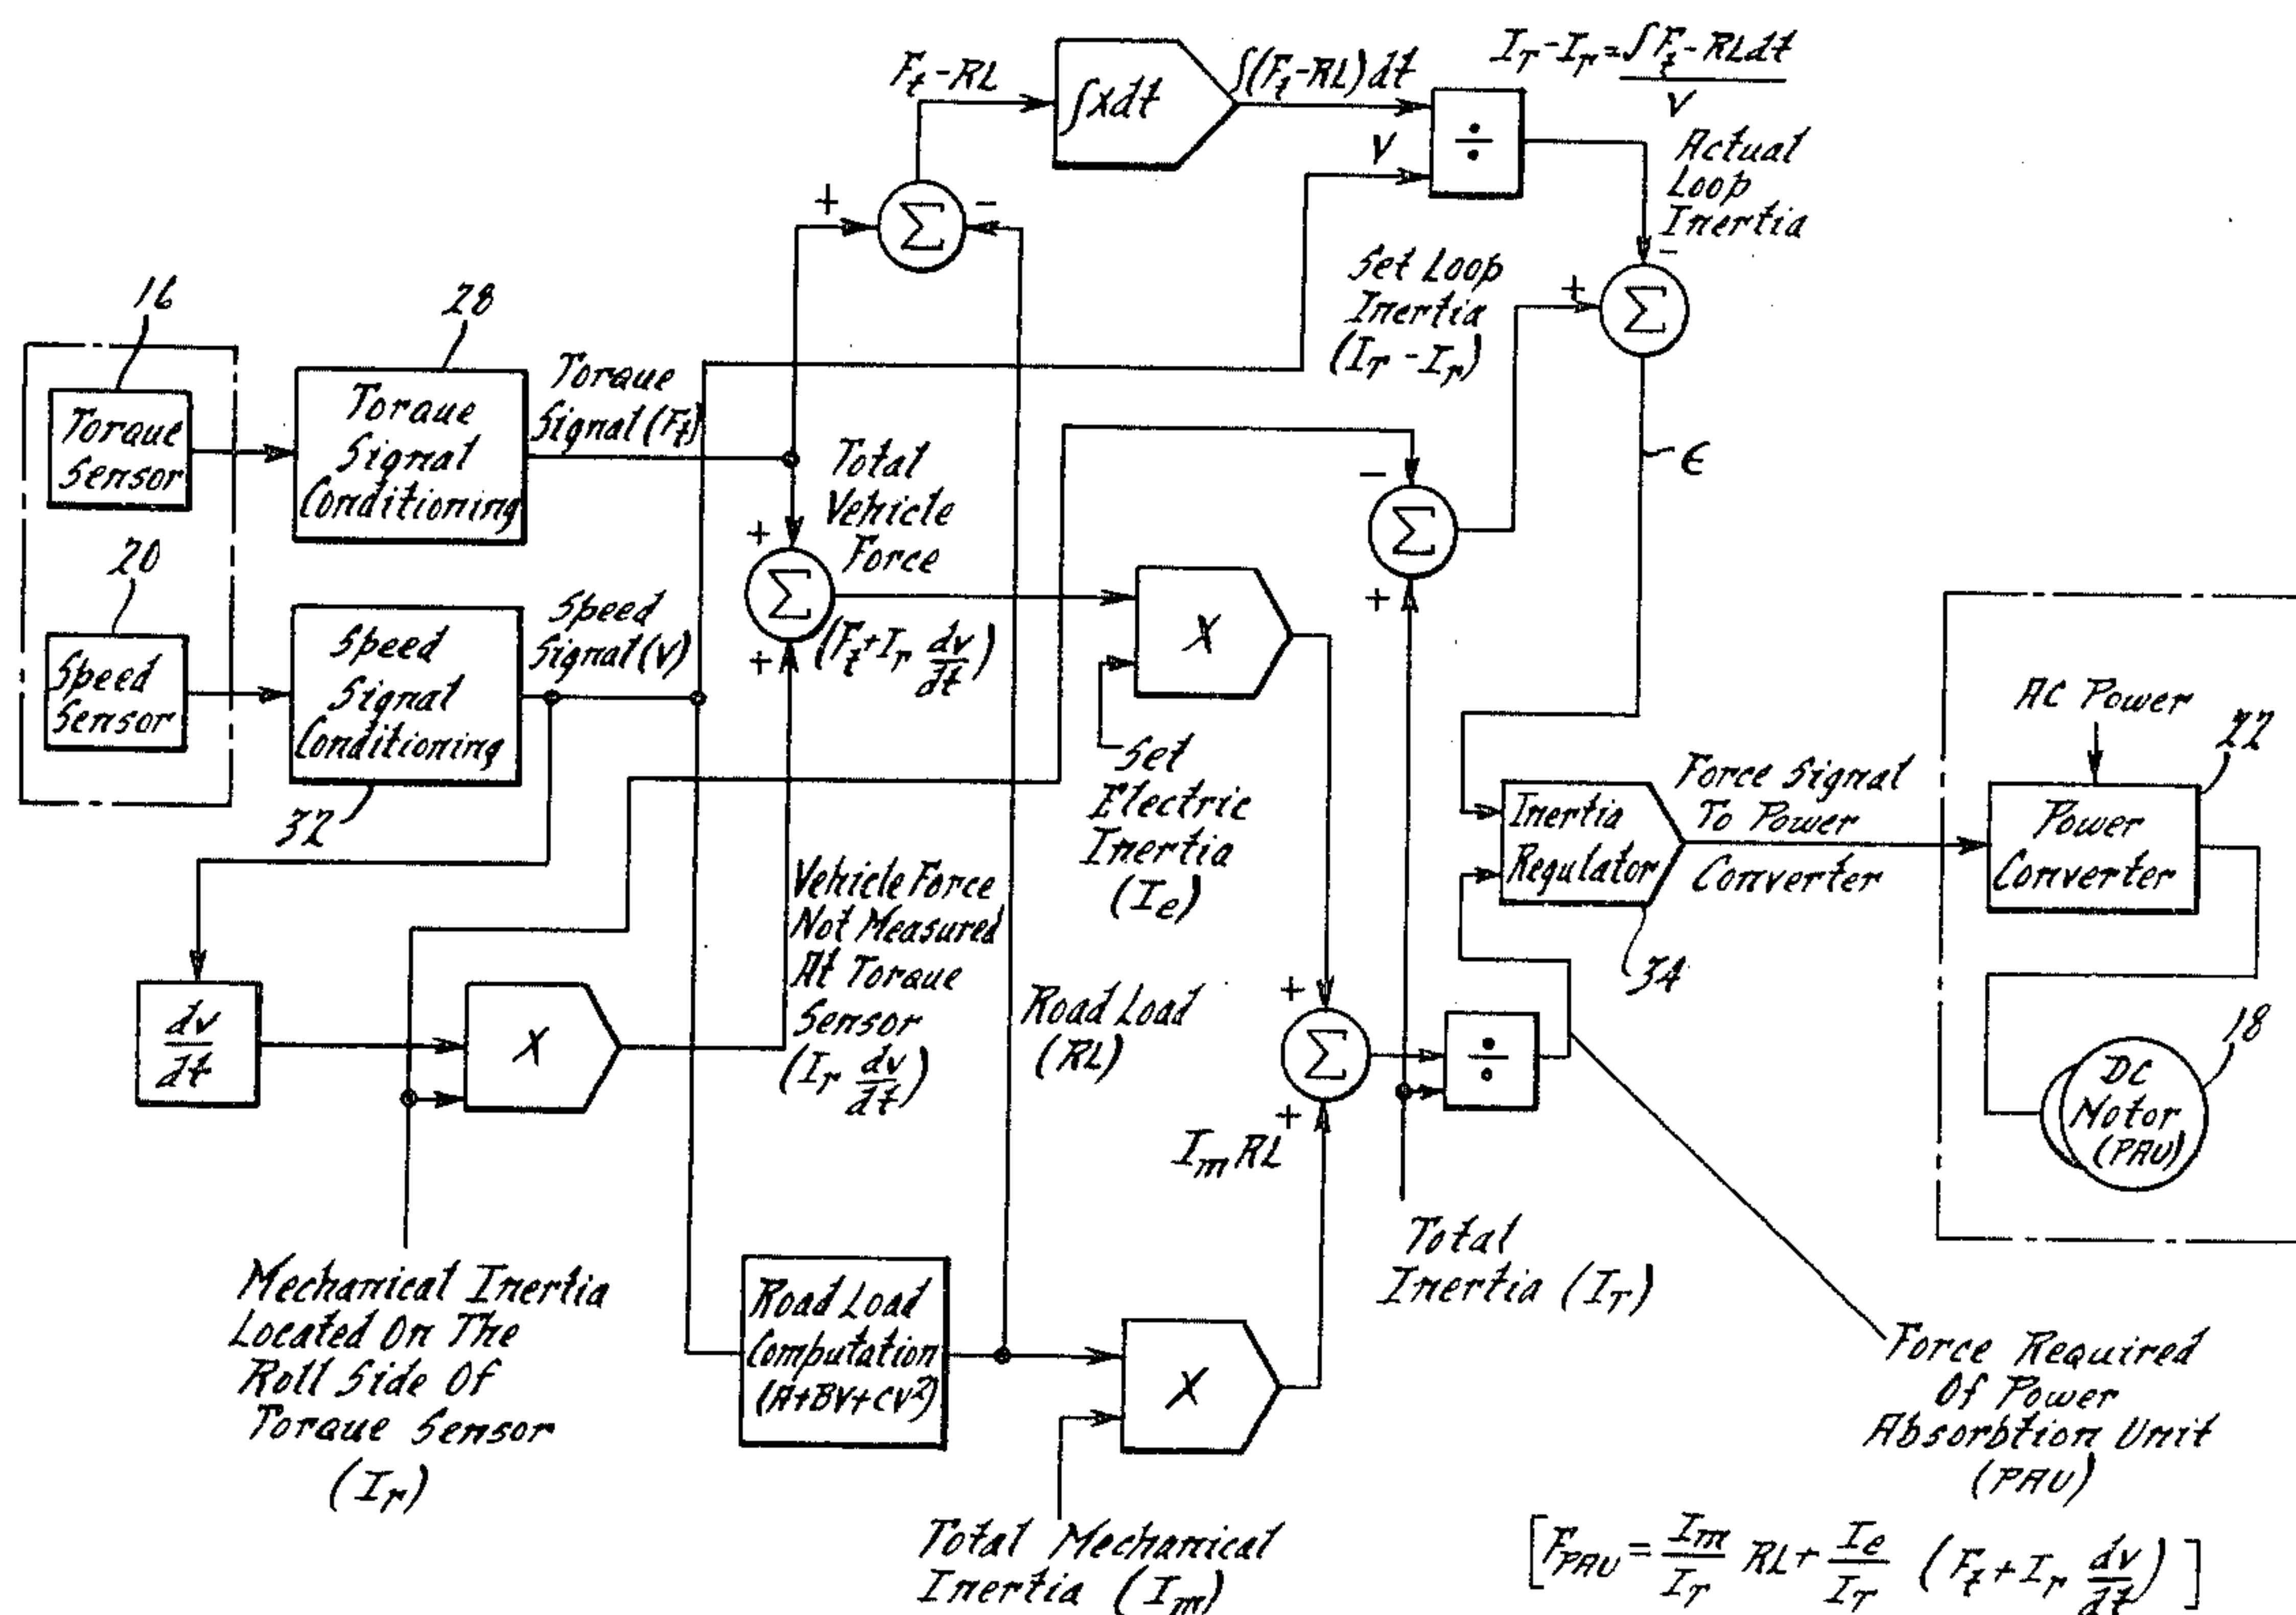 F_t - RL
∫x dt
∫(F_t - RL) dt
I_T - I_r = ∫F_t - RL dt
V
V
÷
Actual
Loop
Inertia
+
Σ
-
-
+
Σ
Set Loop
Inertia
(I_T - I_r)
16
28
Torque
Sensor
Torque
Signal
Conditioning
Torque
Signal (F_t)
ϵ
Total
Vehicle
Force
-
Σ
+
20
Speed
Sensor
Speed
Signal
Conditioning
32
Speed
Signal (V)
+
Σ
+
(F_t + I_r dv/dt)
X
Set
Electric
Inertia
(I_e)
AC Power
22
Power
Converter
Inertia
Regulator
34
Force Signal
To Power
Converter
Vehicle Force
Not Measured
At Torque
Sensor
(I_r dv/dt)
dv
dt
X
Road Load
(RL)
+
Σ
+
÷
18
DC
Motor
(PAU)
I_m RL
Total
Inertia (I_T)
Mechanical Inertia
Located On The
Roll Side Of
Torque Sensor
(I_r)
Road Load
Computation
(A+BV+CV²)
X
Force Required
Of Power
Absorbtion Unit
(PAU)
Total Mechanical
Inertia (I_m)
[F_PAU = I_m/I_T RL + I_e/I_T (F_t + I_r dv/dt)]